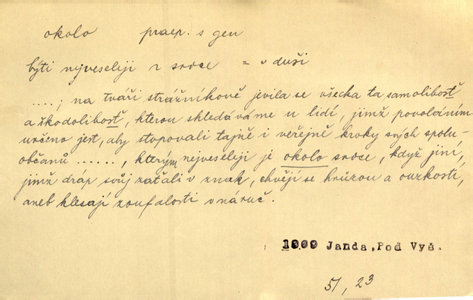 okolo praep. s gen
býti nejveseleji v srdce = v duši
....; na tváři strážníkově jevila se všecka ta samolibost
a škodolibost, kterou shledáváme u lidí, jimž povoláním
určeno jest, aby stopovali tajně i veřejně kroky svých spolu-
občanů ......, kterým nejveseleji je okolo srdce, když jiní,
jimž dráp svůj zaťali v znak, chvějí se hrůzou a ouzkostí,
aneb klesají zoufalosti v náruč.
1899 Janda, Pod Vyš.
51, 23